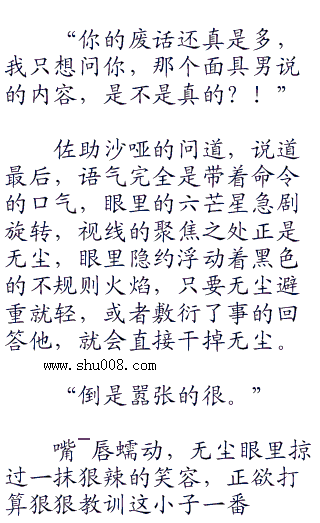 “你的废话还真是多，
我只想问你，那个面具男说
的内容，是不是真的？！”
佐助沙哑的问道，说道
最后，语气完全是带着命令
的口气，眼里的六芒星急剧
旋转，视线的聚焦之处正是
无尘，眼里隐约浮动着黑色
的不规则火焰，只要无尘避
重就轻，或者敷衍了事的回
答他，就会直接干掉无尘。
www.shu008.com
“倒是嚣张的很。”
嘴¯唇蠕动，无尘眼里掠
过一抹狠辣的笑容，正欲打
算狠狠教训这小子一番